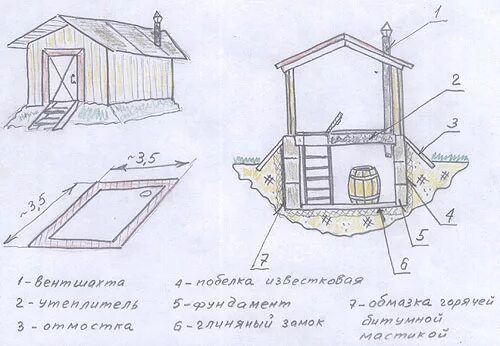 1
2
3
4
5
6
7
~3,5
~3,5
1-вентшахта
2-утеплитель
3-отмостка
4-побелка известковая
5-фундамент
6-глиняный замок
7-обмазка горячей
битумной
мастикой